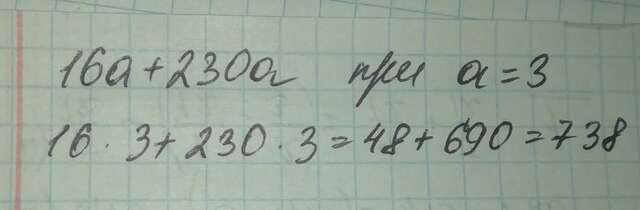 16a+230a при a=3
16·3+230·3=48+690=738